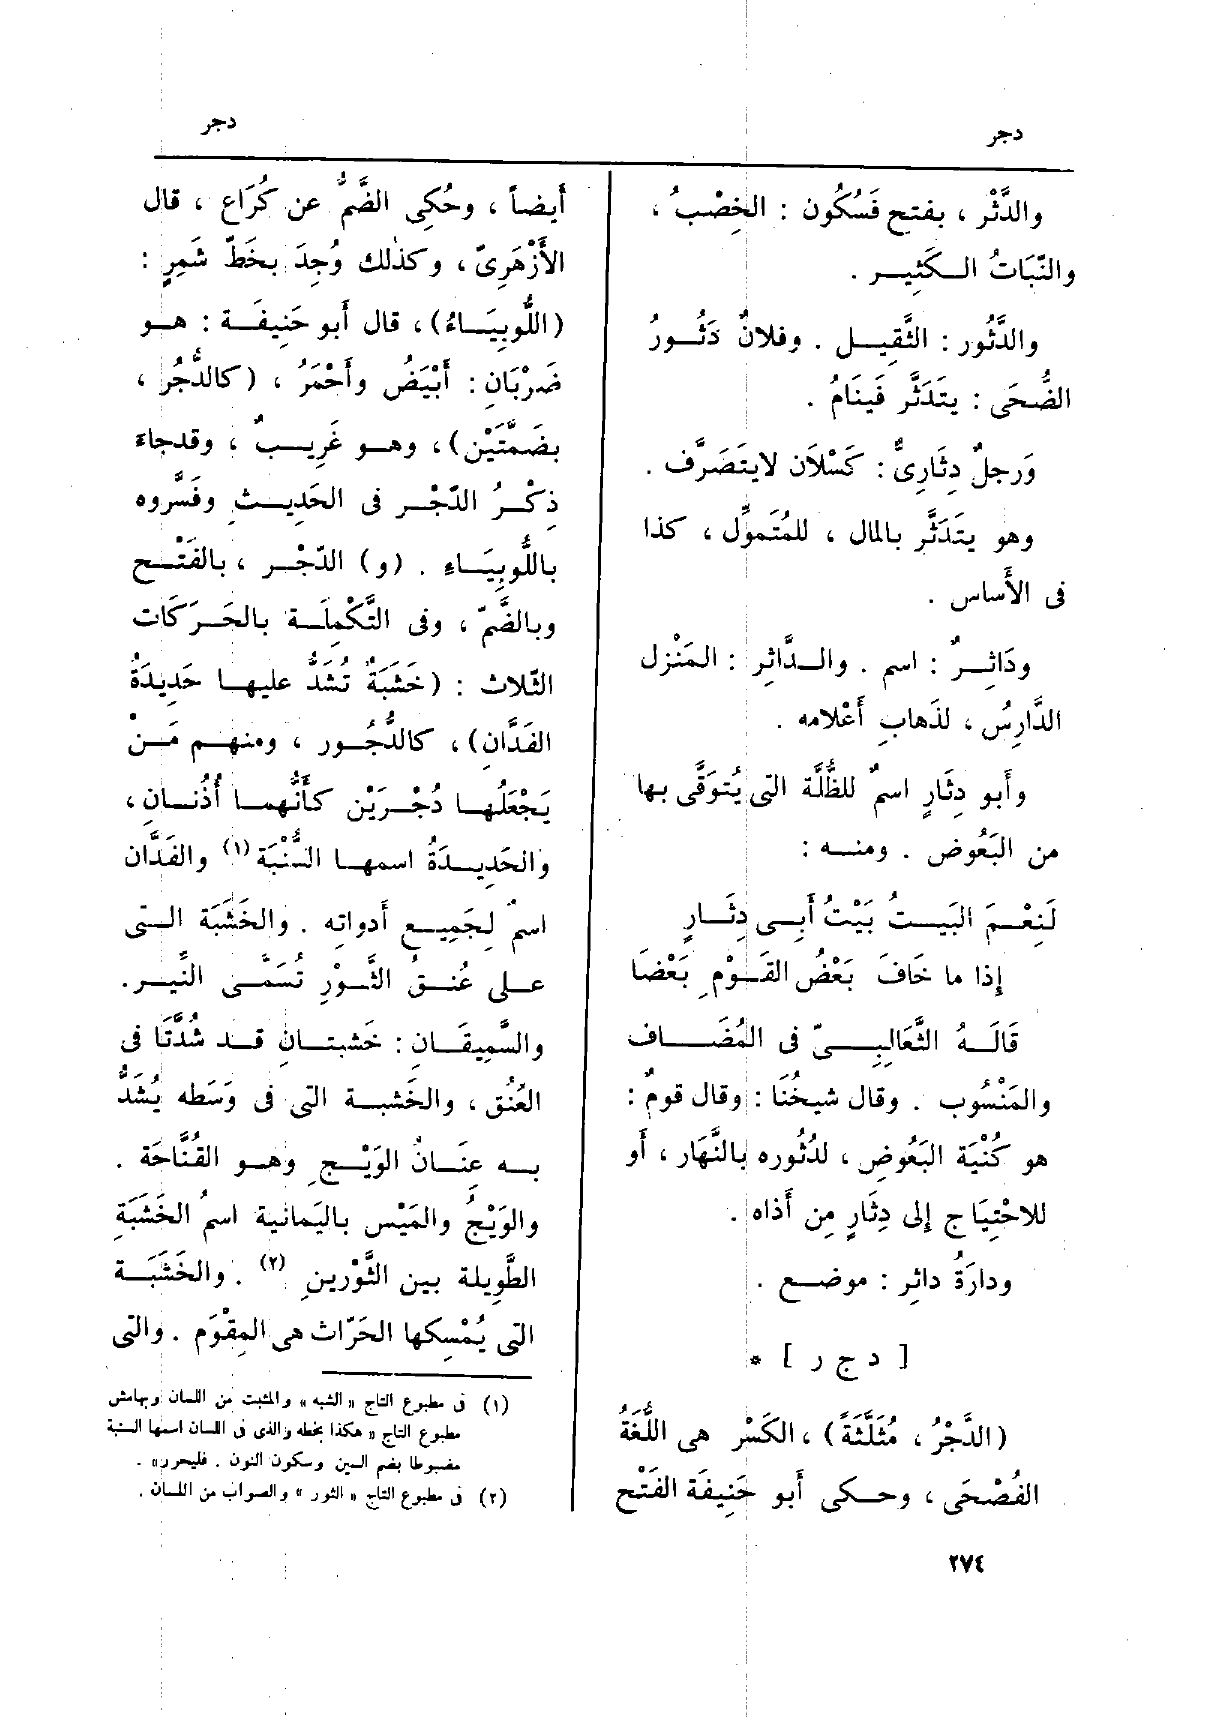 دجر
دجر
والدَّثْر ، بفتح فَسُكُون : الخِصْبُ ،
والنَّبَاتُ الكَثِير .
والدَّثُور : الثَّقِيل . وفلانٌ دَثُورُ
الضُّحَى : يتَدَثَّر فَينَامُ .
وَرجلٌ دِثَارِىٌّ : كَسْلَان لايتَصَرَّف .
وهو يتَدَثَّر بالمال ، للمُتَموِّل ، كذا
فى الأَساس .
ودَاثِرٌ : اسم . والدَّاثِر : المَنْزل
الدَّارِسُ ، لذَهابِ أَعْلامه .
وأَبو دِثَارٍ اسمٌ للظُّلَّة التى يُتوَقَّى بها
من البَعُوض . ومنه :
لَنِعْمَ البَيتُ بَيْتُ أَبى دِثَارٍ
إِذا ما خَافَ بَعْضُ القَوْمِ بَعْضَا
قَالَهُ الثَّعَالِبىّ فى المُضَاف
والمَنْسُوب . وقال شيخُنَا : وقال قومٌ :
هو كُنْيَة البَعُوضِ ، لدُثُوره بالنَّهَار ، أَو
للاحْتِيَاج إِلى دِثَارٍ مِن أَذاه .
ودارَةُ داثِر : موضع .
[ د ج ر ] *
(الدَّجْرُ ، مُثَلَّثَةً) ، الكَسْر هى اللُّغَةُ
الفُصْحَى ، وحكى أَبو حَنِيفَة الفَتْح
أَيضاً ، وحُكِى الضَّمُّ عن كُرَاع ، قال
الأَزْهَرِىّ ، وكذٰلك وُجِدَ بخَطّ شَمِرٍ :
(اللُّوبِيَاءُ) ، قال أَبو حَنِيفَة : هو
ضَرْبَانِ : أَبْيَضُ وأَحْمَرُ ، (كالدُّجُرِ ،
بضَمَّتَيْن) ، وهو غَرِيبٌ ، وقدجاءَ
ذِكْرُ الدّجْر فى الحَدِيثِ وفَسَّروه
باللُّوبِيَاءِ . (و) الدّجْر ، بالفَتْح
وبالضَّمّ ، وفى التَّكْمِلَة بالحَرَكَات
الثّلاث : (خَشَبَةٌ تُشَدُّ عليها حَدِيدَةُ
الفَدَّانِ) ، كالدُّجُور ، ومنهم مَنْ
يَجْعَلُها دُجْرَيْن كأَنَّهما أُذْنانِ ،
والحَدِيدَةُ اسمها السُّنْبَة (١) والفَدَّان
اسمٌ لِجَمِيع أَدواته . والخَشَبَة التى
على عُنقُ الثَّوْرِ تُسَمَّى النِّير .
والسَّمِيقَان : خَشبتانِ قد شُدَّتَا فى
العُنُق ، والخَشبة التى فى وَسَطه يُشَدُّ
به عِنَانُ الوَيْجِ وهو القُنَّاحَة .
والوَيْجُ والمَيْس باليَمانية اسمُ الخَشبَةِ
الطَّوِيلة بين الثَّوْرينِ (٢) . والخَشَبَة
التى يُمْسِكها الحَرّاث هى المِقْوَم . والتى
(١) فى مطبوع التاج «الشبه» والمثبت من اللسان وبهامش
مطبوع التاج «هكذا بخطه والذى فى اللسان اسمها السنبة
مضبوطا بضم السين وسكون النون . فليحرر» .
(٢) فى مطبوع التاج «الثور» والصواب من اللسان .
٢٧٤